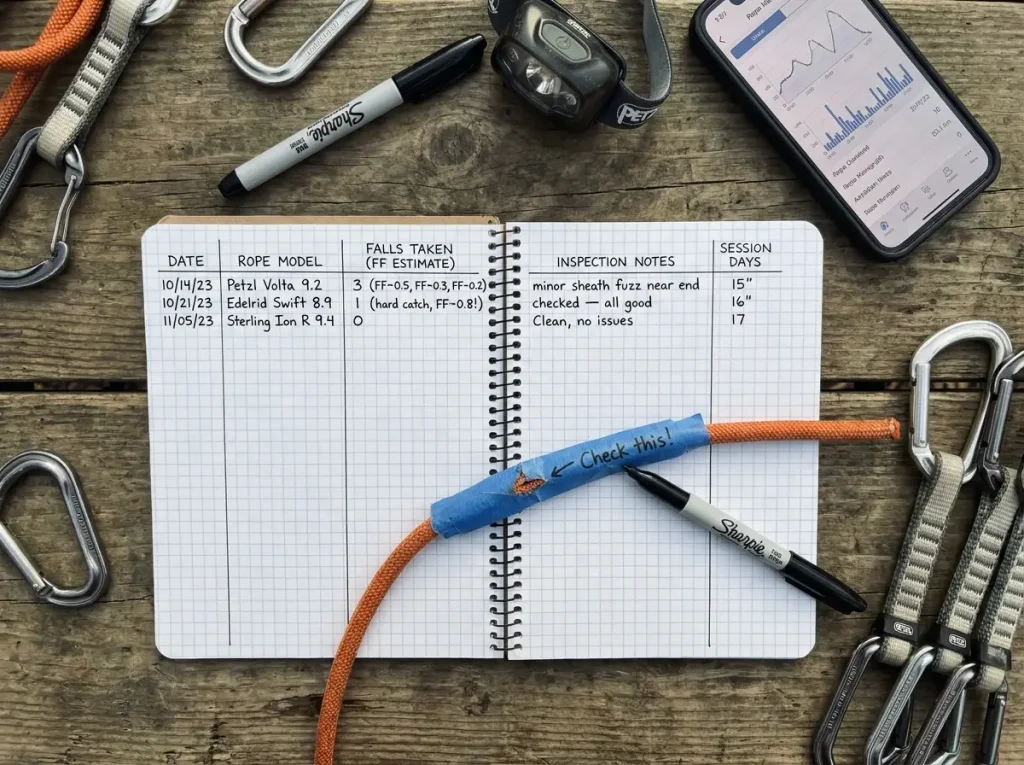 Sharpie
PETZL
DATE ROPE MODEL FALLS TAKEN (FF ESTIMATE) INSPECTION NOTES SESSION DAYS
10/14/23 Petzl Volta 9.2 3 (FF~0.5, FF~0.3, FF~0.2) minor sheath fuzz near end 15"
10/21/23 Edelrid Swift 8.9 1 (hard catch, FF~0.8!) checked — all good 16"
11/05/23 Sterling Ion R 9.4 0 Clean, no issues 17
← Check this!
Sharpie